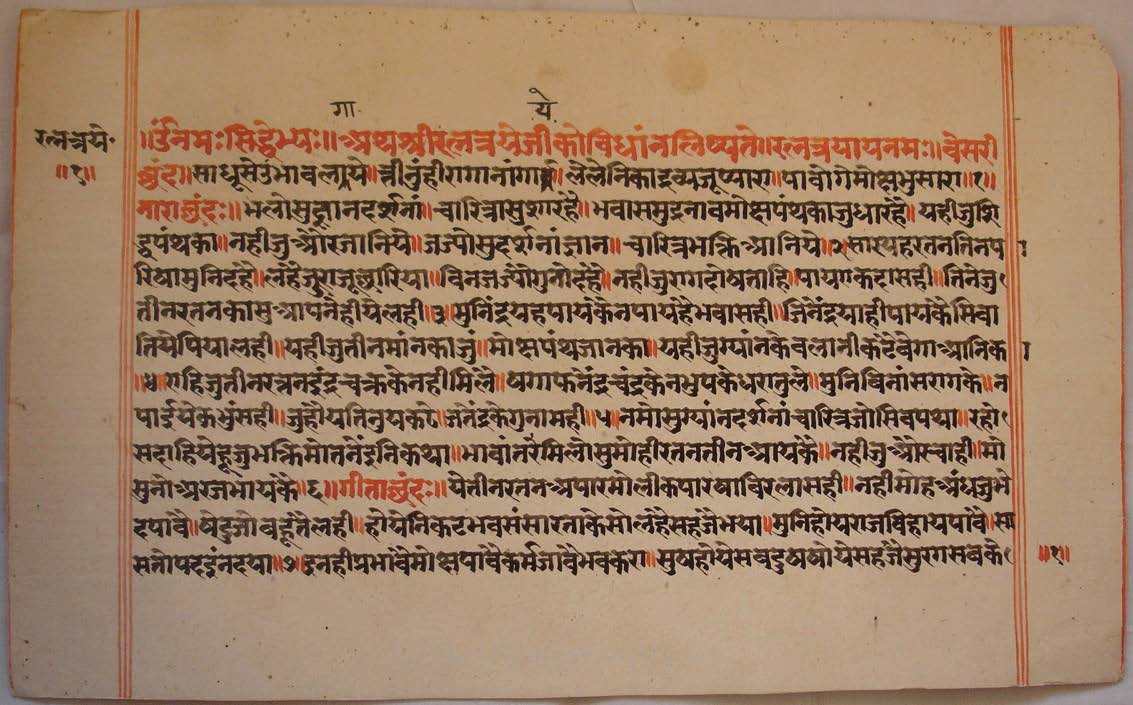 गा ये
रत्नत्रये
॥उंनमःसिद्धेभ्यः॥अथश्रीरत्नत्रयेजीकोविधांनलिष्यते॥रत्नत्रयायनमः॥वेसरी
॥१॥
छंद॥साधूसेउभावलाये॥लेलेनिकाद्रव्यजूप्यारा॥पावोगेमोक्षभुसारा॥१॥
नाराछंदः॥भलोसुज्ञानदर्शनां॥चारित्रा॥भवासमुद्रनावमोक्षपंथकाजुधारहै॥यहीजुशि
द्धपंथका॥नहीजुऔरजानिये॥जज्योसुदर्शनांज्ञान॥चारित्रभक्तिआनिये॥२॥
रिषामुनिदहै॥विनजज्योगुनोदहै॥नहीजुरागदोषनाहि॥पायगकदासही॥तिनेजु
तीनरतनकासुआपनेहीयेलही॥३॥मुनिंद्रयहपायकेनपायहैभवासही॥जिनेंद्रयाहीपायकेसिवा
तियेपियालही॥यहीजुतीनमांनकाजुं॥मोक्षपंथजानका॥यहीजुग्यांनकेवलानीकटेवेगाआनिक
॥४॥राहिजुतीनरत्ननइंद्रचक्रकेनहीमिले॥षगाफनेंद्रचंद्रकेनभुपकेधरातुले॥मुनिविनांसरागके॥न
पाईयेकभुंमही॥जुहोयतिनुयको॥जतेंद्रकेगुनामही॥५॥नमोसुग्यांनदर्शनांचारित्रजोसिवपथा॥रहो
सदाहियेहूजुभक्तिमोतनेंइनिकथा॥भावांतरेमिलोसुमोहीरतनतीनआयके॥नहीजुऔरचाही॥मो
सुनोअरजभायके॥६॥गीताछंदः॥येतीनरतनअपारमोलीकपारषाविरलासही॥नहीमोहअंधजुभे
दपावै॥हीयेनिकटभवसंसारताकेसोलहैसहजेभया॥मुनिहोयराजविहायपावै॥सा
सतोपदइंनदया॥७॥इनहीप्रभावेमोक्षपावैकर्मजावैभवकरा॥मुषहोयेसबदुषषायेसहजेसुरगसबके
॥१॥